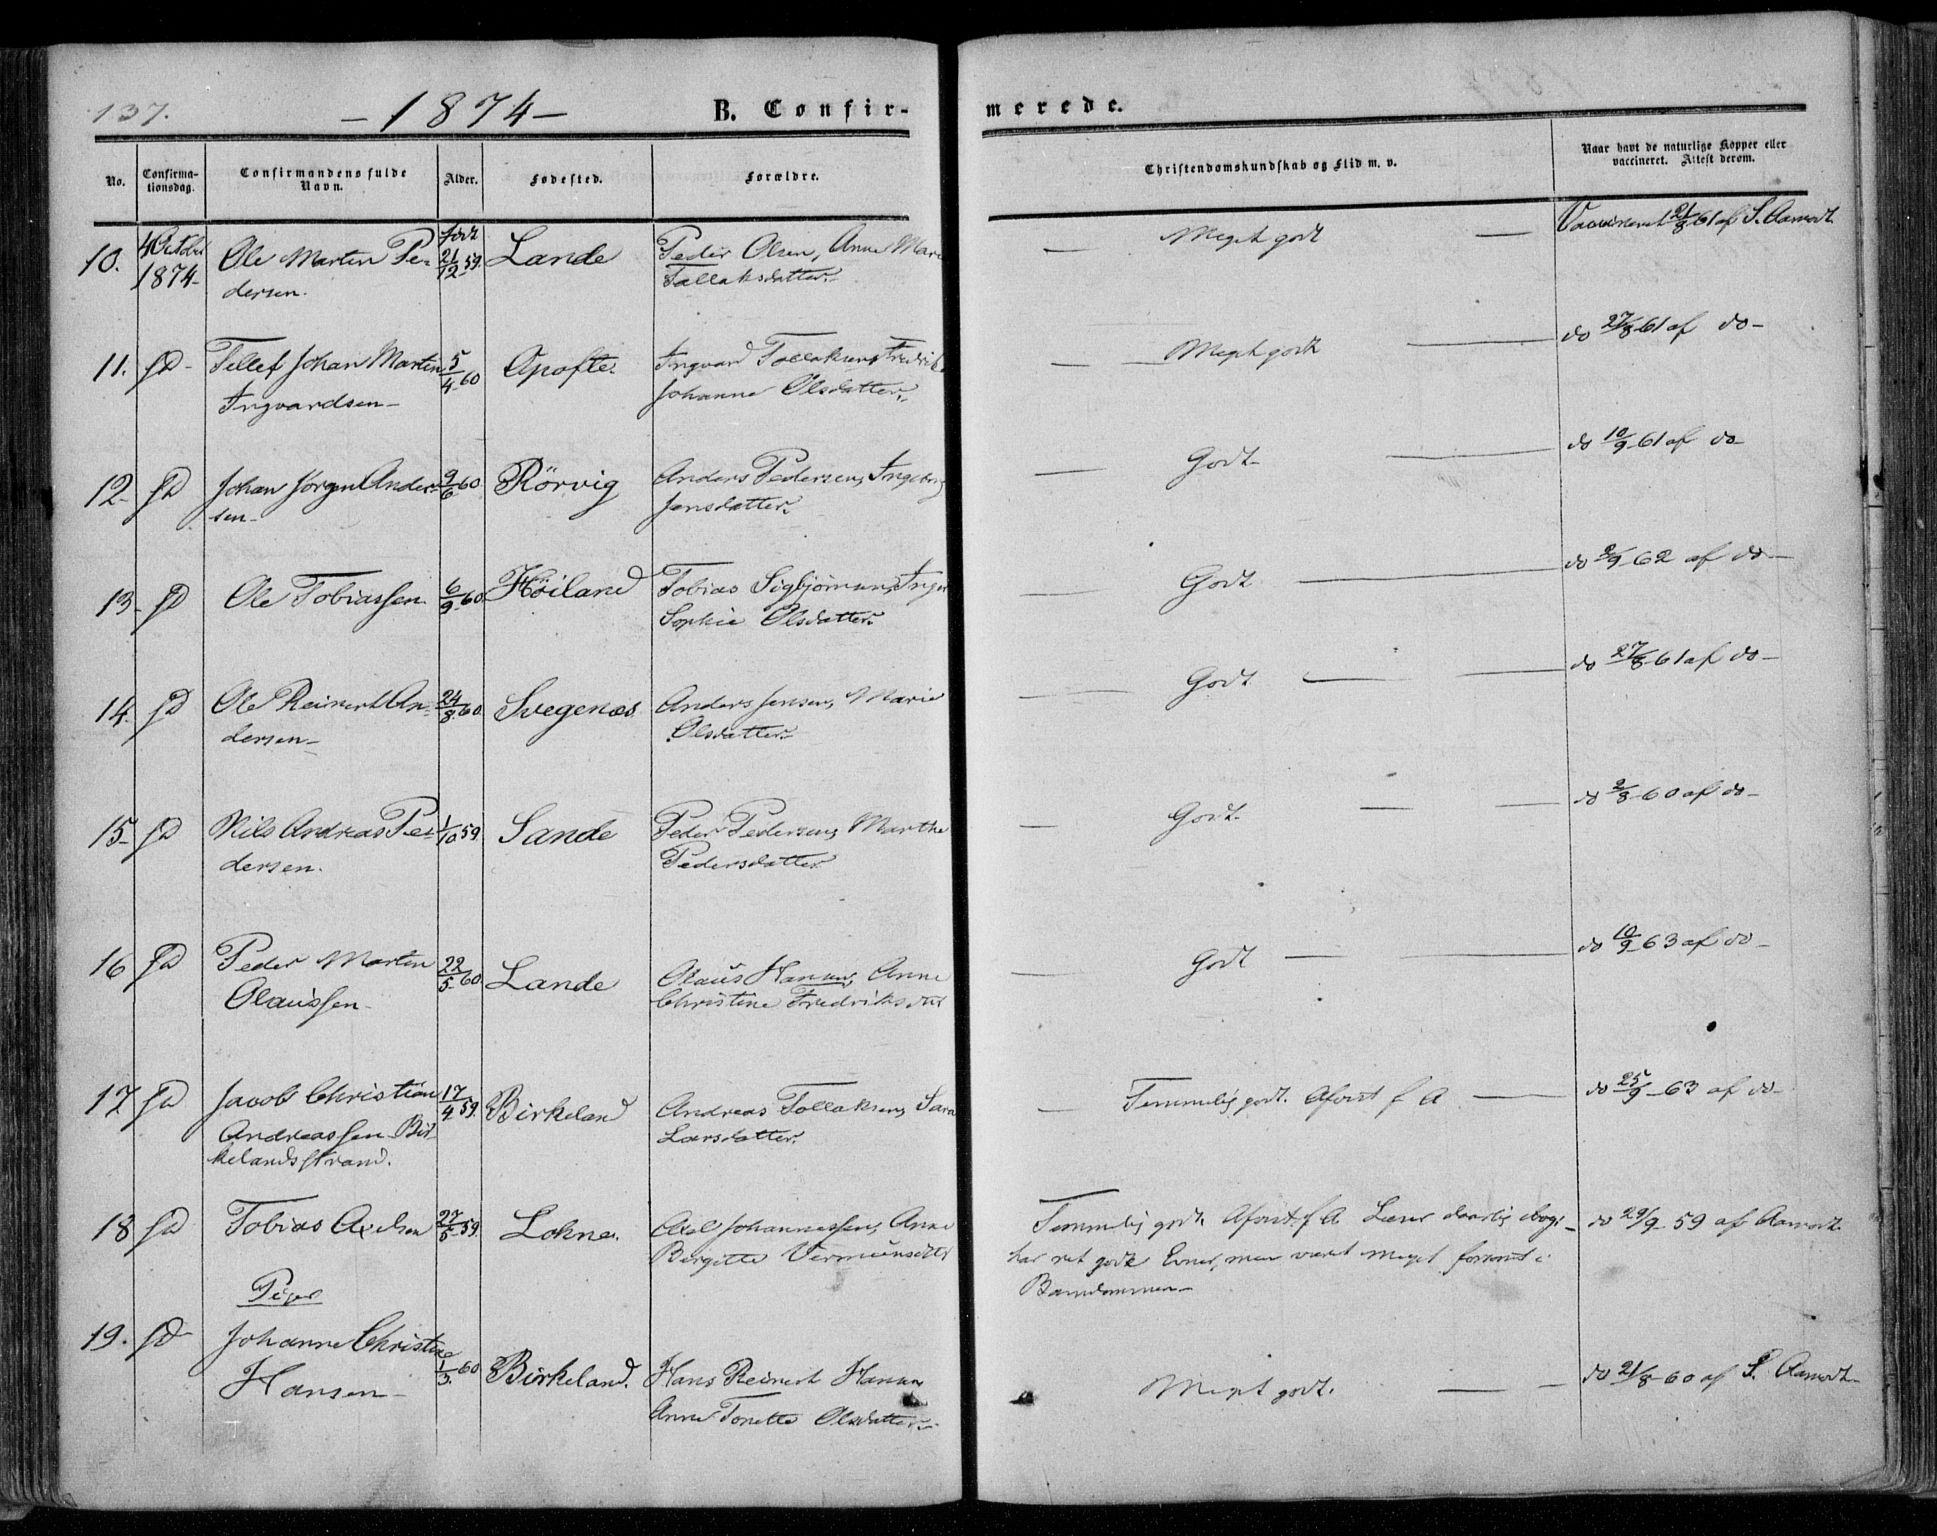 137.
- 1874 - B. Confirmerede.
No. Confirmationsdag. Confirmandens fulde Navn. Alder. Fødested. Forældre. Christendomskundskab og Flid m. v. Naar havt de naturlige Kopper eller vaccineret. Attest derom.
10. 4 Octbr 1874- Ole Martin Pe- født 21/12 59. Lande Peder Olsen, Anne Marie — Meget godt — Vaccineret 21/8 61 af S. Aamodt
dersen. Tallaksdatter.
11. sd- Tellef Johan Martin 5/4 60 Apofte. Ingvard Tallaksen, Fredrikke — Meget godt — do 27/8 61 af do-
Ingvardsen- Johanne Olsdatter.
12- sd Johan Jörgen Ander- 9/6 60 Rörvig Anders Pedersen, Ingeborg — Godt- — do 10/9 61 af do-
sen- Jensdatter.
13- sd Ole Tobiassen 6/9 60 Höiland Tobias Sigbjörnsen, Inger — Godt — do 2/9 62 af do-
Sophie Olsdatter.
14. sd Ole Reinert An- 24/8 60 Svegenæs Anders Jensen, Marie — Godt — do 27/8 61 af do-
dersen- Olsdatter-
15- sd Nils Andreas Pe- 1/10 59. Sande Peder Pedersen, Marthe — Godt- — do 2/8 60 af do-
dersen. Pedersdatter
16 sd Peder Martin 22/5 60 Lande Olaus Hansen, Anne — Godt — do 10/9 63 af do-
Olaussen- Christine Fredriksdtr
17 sd Jacob Christian 17/4 59. Birkeland Andreas Tollaksen, Sara — Temmelig godt. Afvist f A — do 25/9 63 af do-
Andreassen Bir- Larsdatter.
kelandsstrand.
18 sd Tobias Axelsen 27/5 59. Lohne. Axel Johannessen, Anne Temmelig godt. Afvist f A Læser daarlig i Bog- do 29/9 59 af Aamodt
Birgitte Vermundsdtr har ret godt Evner, men været meget forsømt i
Barndommen-
Piger
19. sd Johanne Christine 1/3 60 Birkeland. Hans Reinert Hansen — Meget godt. — do 21/8 60 af S. Aamodt-
Hansen- Anne Tonette Olsdatter-